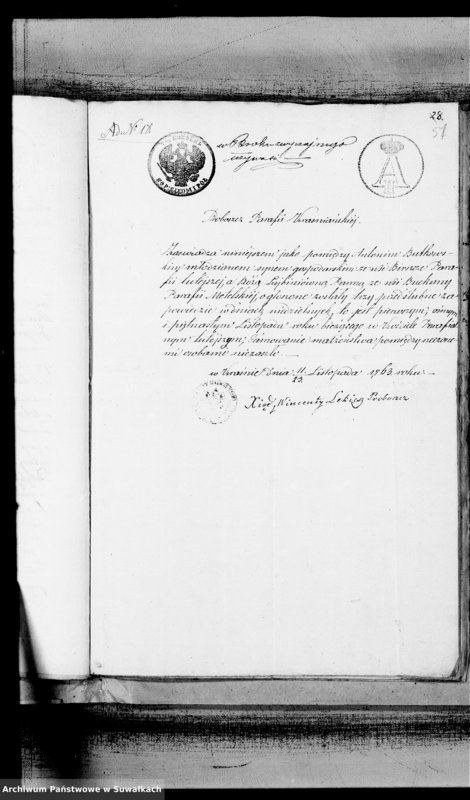 Ad N° 18
28.
51
w Braku zwyczajnego
używać
KOP. SIEDM I POŁ
A II
Proboszcz Parafii Krasnieńskiej.
Zaświadcza niniejszem jako pomiędzy Antonim Butkows-
kim młodzianem synem gospodarskim ze wsi Parafii
tutejszej, a Panną ze wsi Buchany
Parafii Metelskiej, ogłoszone zostały trzy przedślubne za-
powiedzie w dniach niedzielnych, to jest pierwszym, ósmym
i piętnastym Listopada roku bieżącego w Kościele Parafial-
nym tutejszym; Tamowanie małżeństwa pomiędzy rzeczone-
mi osobami niezaszło.
w Krasnie dnia 11/23 Listopada 1863 roku
Xiądz Wincenty Proboszcz
Archiwum Państwowe w Suwałkach